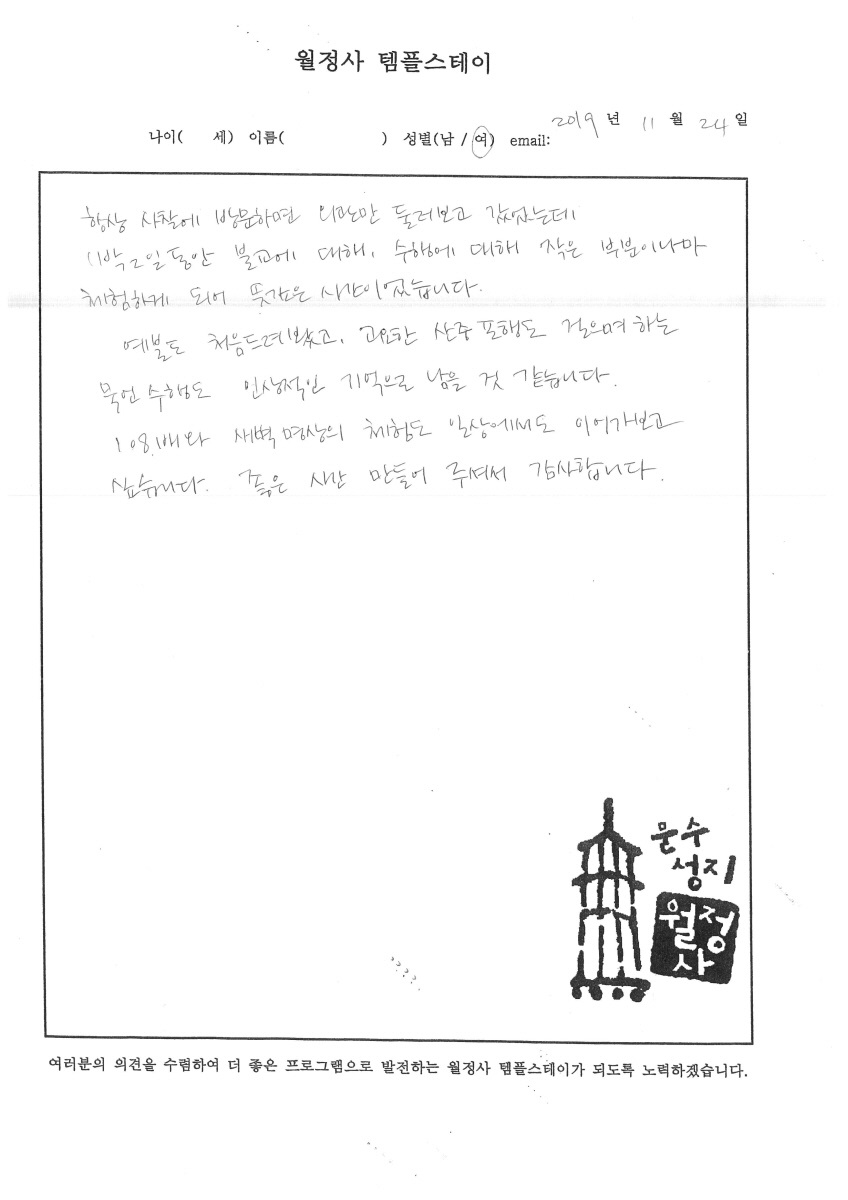 월정사 템플스테이
2019 년 11 월 24 일
나이( 세) 이름( ) 성별(남 / 여) email:
항상 사찰에 방문하면 외관만 둘러보고 갔었는데
1박2일동안 불교에 대해, 수행에 대해 작은 부분이나마
체험하게 되어 뜻깊은 시간이었습니다.
예불도 처음드려봤고, 고요한 산중 포행도 걸으며 하는
묵언 수행도 인상적인 기억으로 남을 것 같습니다.
108배와 새벽 명상의 체험도 일상에서도 이어가보고
싶습니다. 좋은 시간 만들어 주셔서 감사합니다.
문수
성지
월정
사
여러분의 의견을 수렴하여 더 좋은 프로그램으로 발전하는 월정사 템플스테이가 되도록 노력하겠습니다.